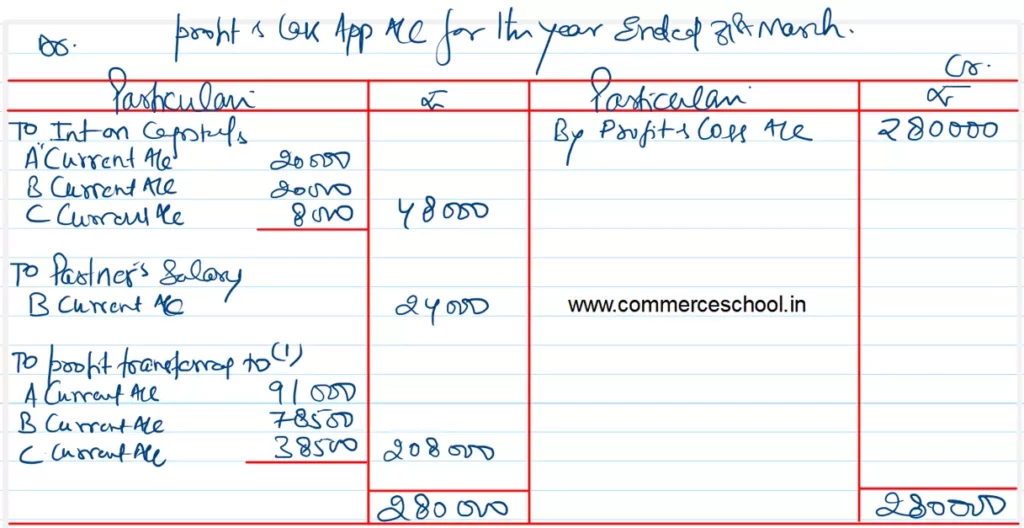 Dr. Profit & Loss App A/c for the year Ended 31st March.
Cr.
Particulars ₹ Particulars ₹
To Int on Capitals By Profit & Loss A/c 280000
A Current A/c 20000
B Current A/c 20000
C Current A/c 8000 48000
To Partner's Salary
B Current A/c 24000 www.commerceschool.in
To profit transferred to (1)
A Current A/c 91000
B Current A/c 78500
C Current A/c 38500 208000
280000 280000